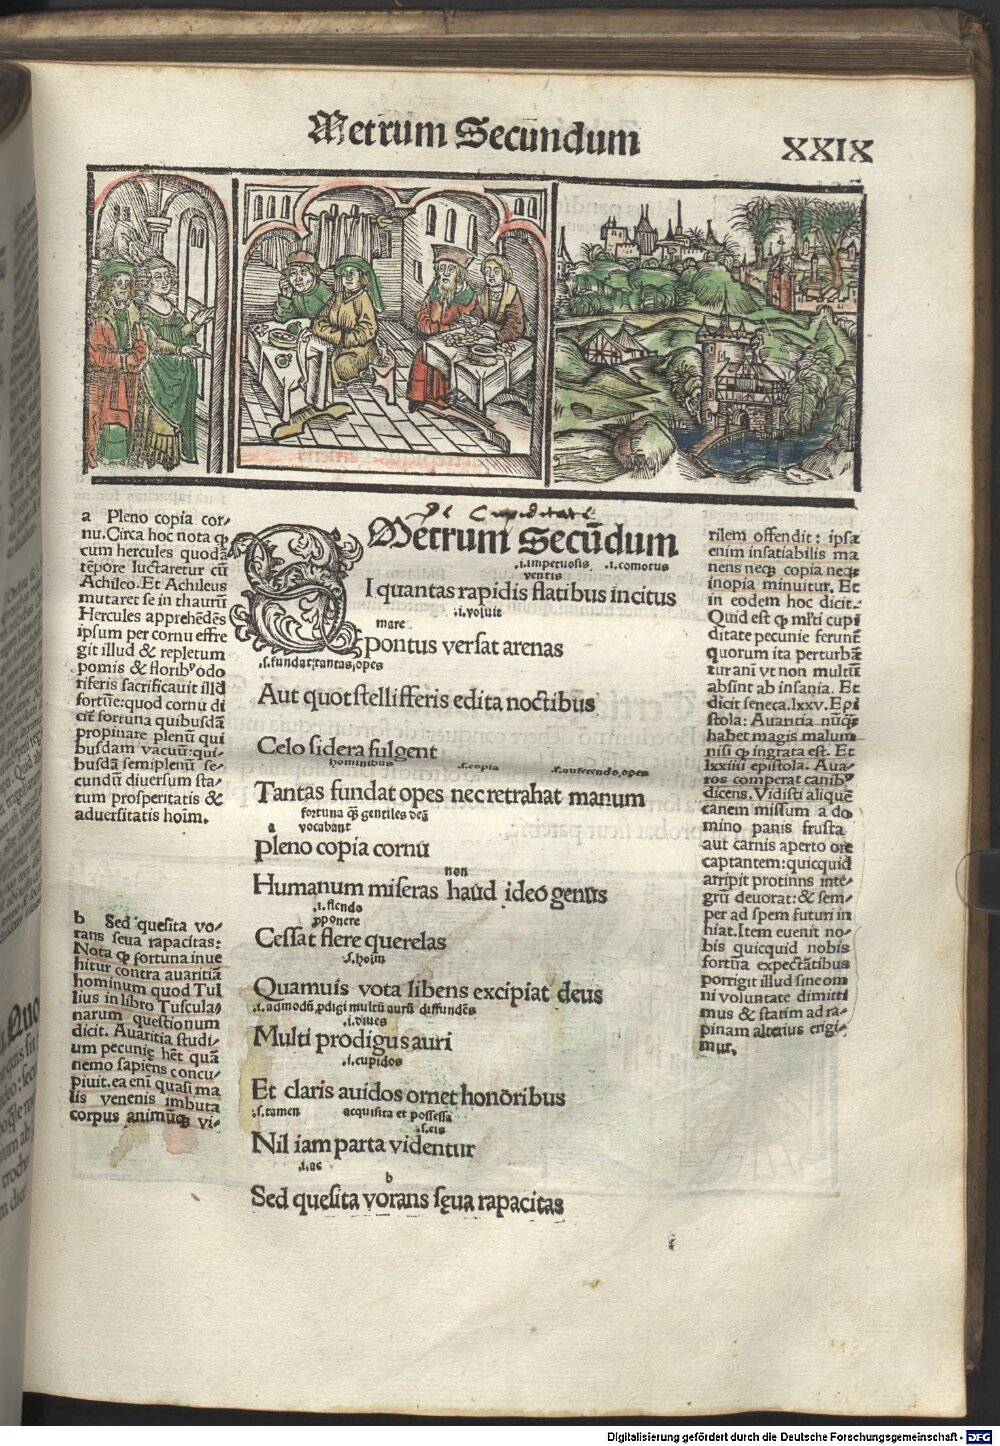 Metrum Secundum
XXIX
De Cupiditate
a Pleno copia cor⸗
nu. Circa hoc nota ꝙ
cum hercules quodā
tēpore luctaretur cū
Achileo. Et Achileus
mutaret se in thaurū
Hercules apprehēdēs
ipsum per cornu effre
git illud & repletum
pomis & floribꝰ odo
riferis sacrificauit illd
fortūe: quod cornu di
cit̄ fortuna quibusdā
propinare plenū qui
busdam vacuū: qui⸗
busdā semiplenū se⸗
cundū diuersum sta⸗
tum prosperitatis &
aduersitatis hoim̄.
b Sed quesita vo⸗
rans seua rapacitas:
Nota ꝙ fortuna inue
hitur contra auaritiā
hominum quod Tul
lius in libro Tuscula⸗
narum questionum
dicit. Auaritia studi⸗
um pecunię hēt quā
nemo sapiens concu⸗
piuit. ea eni quasi ma
lis venenis imbuta
corpus animūꝙ vi⸗
Metrum Secūdum
.i. impetuosis .i. comotus
ventis
SI quantas rapidis flatibus incitus
.i. voluit
mare
pontus versat arenas
.s. fundat; tantas; opes
Aut quot stelliferis edita noctibus
Celo sidera fulgent
hominibus .s. copia .s. auferendo, opes
Tantas fundat opes nec retrahat manum
fortuna ꝙ̄ gentiles deā
a vocabant
pleno copia cornu
non
Humanum miseras haud ideo genus
.i. flendo
ꝓponere
Cessat flere querelas
.s. hoim̄
Quamuis vota libens excipiat deus
.i. admodū ꝓdigi multū aurū diffundēs
.i. diues
Multi prodigus auri
.i. cupidos
Et claris auidos ornet honoribus
.s. tamen acquisita et possessa
.s. eis
Nil iam parta videntur
.i. ac
b
Sed quesita vorans sęua rapacitas
rilem offendit: ipsa
enim insatiabilis ma
nens neqꝫ copia neqꝫ
inopia minuitur. Et
in eodem hoc dicit.
Quid est ꝙ ml̄ti cupi
ditate pecunie ferunt̄
quorum ita perturbā
tur ani vt non multū
absint ab insania. Et
dicit seneca. lxxv. Epi
stola: Auaritia nūqꝫ
habet magis malum
nisi ꝙ ingrata est. Et
lxxiiii epistola. Aua⸗
ros comperat canibꝰ
dicens. Vidisti aliquē
canem missum a do
mino panis frusta
aut carnis aperto ore
captantem: quicquid
arripit protinns inte⸗
grū deuorat: & sem⸗
per ad spem futuri in
hiat. Item euenit no⸗
bis quicquid nobis
fortūa expectātibus
porrigit illud sine om
ni voluntate dimitti
mus & statim ad ra⸗
pinam alterius erigi⸗
mur.
Digitalisierung gefördert durch die Deutsche Forschungsgemeinschaft - DFG